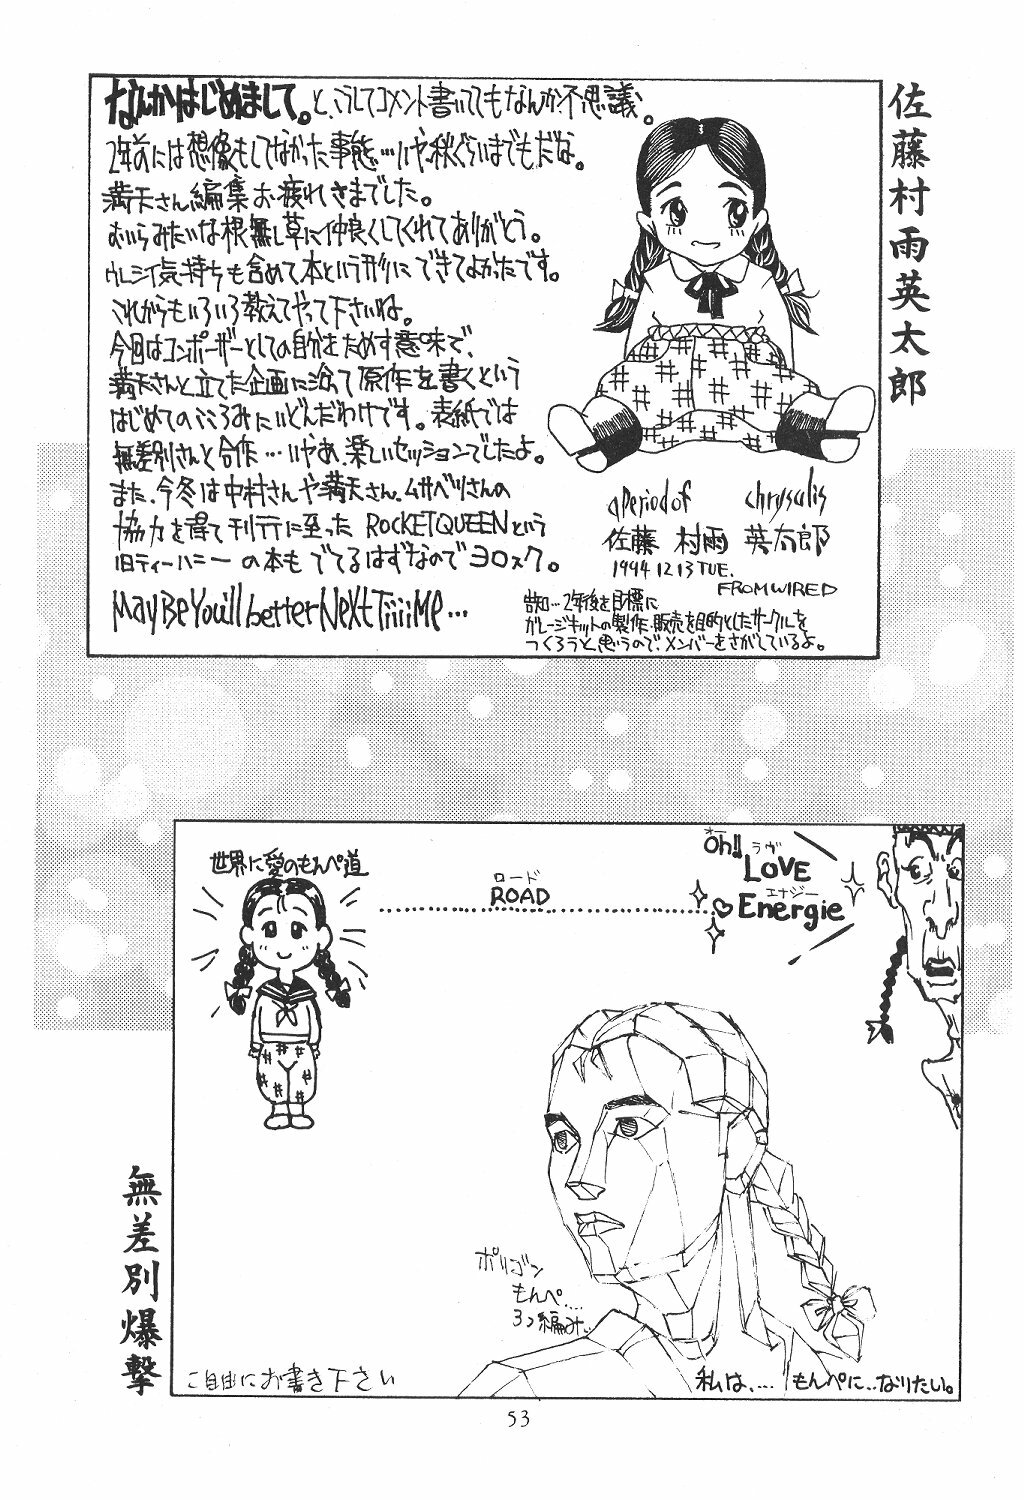 佐藤村雨英太郎
なんかはじめまして。と、こうしてコメント書いてもなんか不思議。
2年前には想像もしてなかった事態…いや、秋ぐらいまでもだな。
満天さん編集お疲れさまでした。
おいらみたいな根無し草に仲良くしてくれてありがとう。
ウレシイ気持ちも含めて本という形にできてよかったです。
これからもいろいろ教えてやって下さいね。
今回はコンポーザーとしての自分をためす意味で、
満天さんと立てた企画に沿って原作を書くという
はじめてのこころみだったわけです。表紙では
無差別さんと合作…いやあ、楽しいセッションでしたよ。
また、今冬は中村さんや満天さん、ムサベツさんの
協力を得て刊行に至った ROCKETQUEENという
旧ティーハニーの本もでてるはずなのでヨロスク。
MayBe You'll better NeXt TiiiiMe…
aperiod of chrysalis
佐藤 村雨 英太郎
1994 12 13 TUE.
FROM WIRED
告知…2年後を目標に
ガレージキットの製作・販売を目的としたサークルを
つくろうと思うので、メンバーをさがしているよ。
世界に愛のもんぺ道
ロード
ROAD
オー
Oh!!
ラヴ
LOVE
エナジー
Energie
ポリゴン
もんぺ…
3つ編み…
ご自由にお書き下さい
私は、… もんぺに…なりたい。
無差別爆撃
53